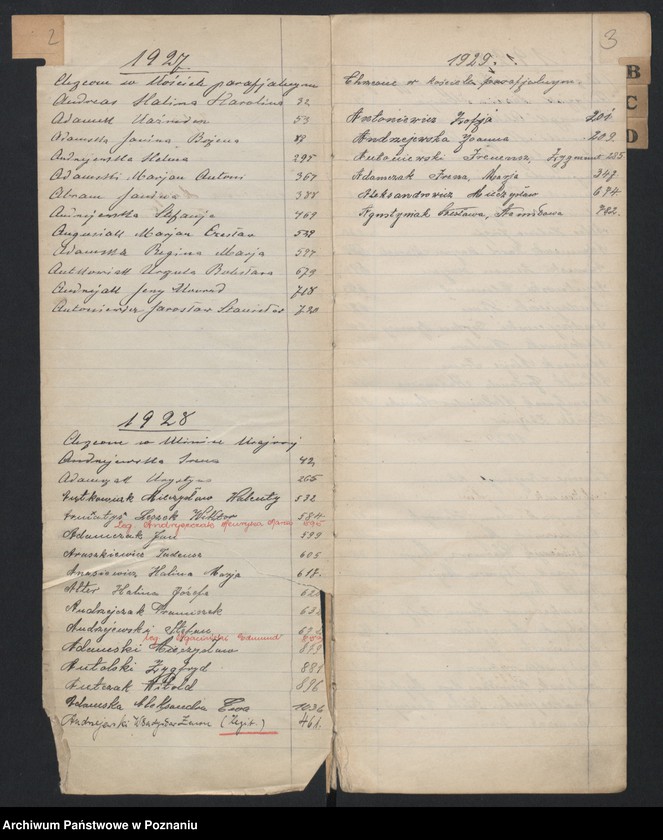 2
1927
Chrzczeni w Kościele parafjalnym
Andreas Halina Karolina 32
Adamek Kazimierz 53
Adamska Janina Bojena
Andrzejewska Helena 295
Adamski Marjan Antoni 367
Abram Janina 388
Andrzejewska Stefanja 469
Marjan Czesław
Adamska Regina Marja 597
Antkowiak Urszula Bolesława 679
Andrzejak Jerzy Konrad 718
Antoniewicz Jarosław Stanisław 720
1928
Andrzejewska Irena 42
Adamczak Krystyna 205
Mieczysław Walenty 532
Leszek Wiktor 584
leg. Andrzejczak
Adamczak Jan 599
Araszkiewicz Tadeusz 605
Anasiewicz Halina Marja 617
Alter Halina Józefa
Andrzejczak Franciszek
Andrzejewski Stefan
leg. Edmund
Adamski Mieczysław 879
Antolski Zygfryd 881
Antczak Witold 896
Adamska Aleksandra Ewa 1036
Andrzejewski Władysław Zenon (Legit.) 461.
3
1929.
Chrzczone w kościele parafjalnym
Antoniewicz Zofja 201
Andrzejewska Joanna 209
Antoniewski Ireneusz, Zygmunt 285
Adamczak Irena, Marja 347.
Aleksandrowicz Mieczysław 674
Agnstyniak Czesława, Stanisława 782.
B
C
D
Archiwum Państwowe w Poznaniu